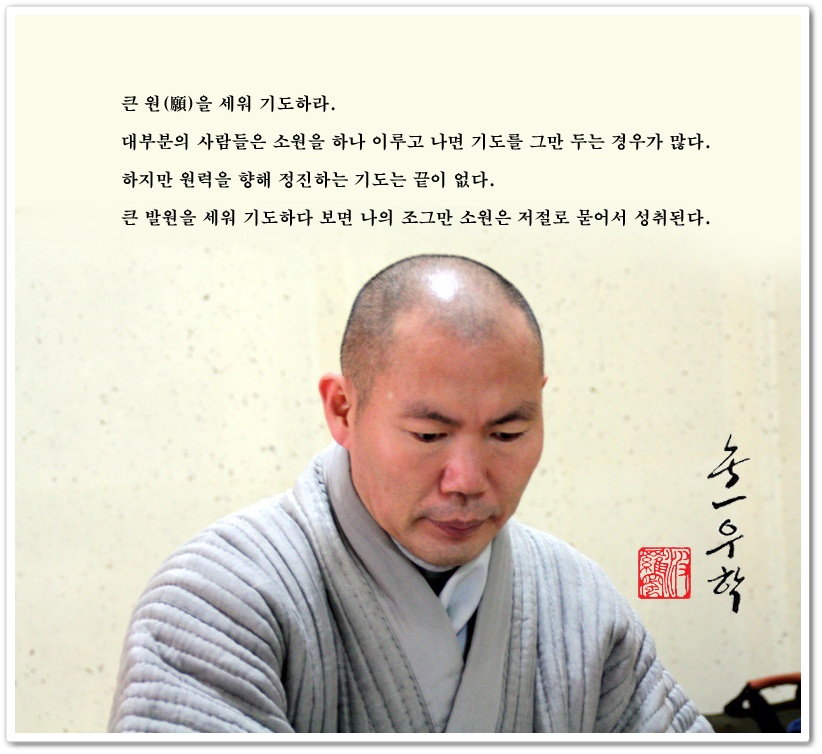 큰 원(願)을 세워 기도하라.
대부분의 사람들은 소원을 하나 이루고 나면 기도를 그만 두는 경우가 많다.
하지만 원력을 향해 정진하는 기도는 끝이 없다.
큰 발원을 세워 기도하다 보면 나의 조그만 소원은 저절로 묻어서 성취된다.
無一우학